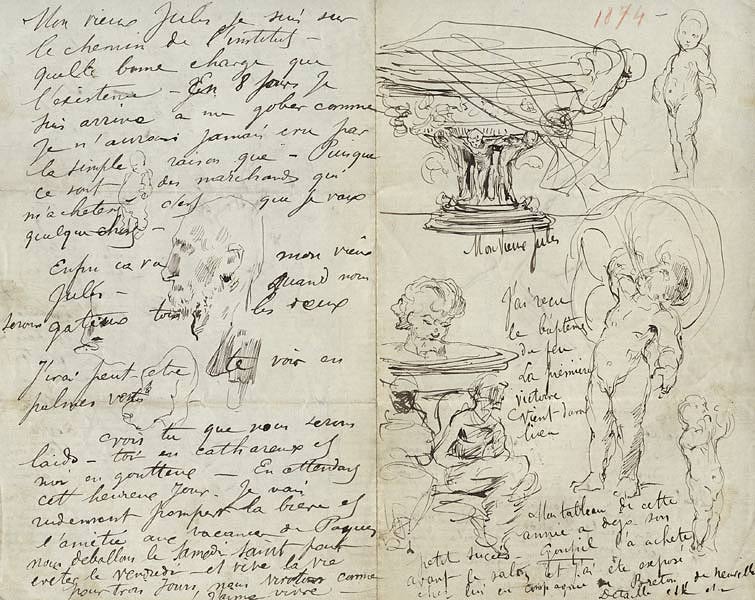 Mon vieux Jules je suis sur
le chemin de l'institut -
quelle bonne charge que
l'existence - En 8 jours je
suis arrivé a me gober comme
je n'aurais jamais cru par
la simple raison que - Puisque
ce sont des marchands qui
m'achetent c'est que je vaux
quelque chose -
Enfin ca va mon vieux
Jules - quand nous
serons gateux tous les deux
J'irai peut-etre te voir en
palmes vertes
crois tu que nous serons
laids - toi en cathareux et
moi en goutteux - En attendant
cet heureux jour. Je vais
rudement pomper la biere et
l'amitié aux vacances de Paques
nous deballons le samedi saint pour
eviter le vendredi - et vive la vie
pour trois jours nous vivrons comme
j'aime vivre -
1874 -
Mon vieux Jules
J'ai recu
le baptême
du feu
La première
victoire
vient d'avoir
lieu
Mon tableau de cette
annee a deja son
petit succès - Goupil l'a acheté
avant le salon et j'ai été exposé
chez lui en compagnie de Breton, de Neuville
Detaille etc etc -